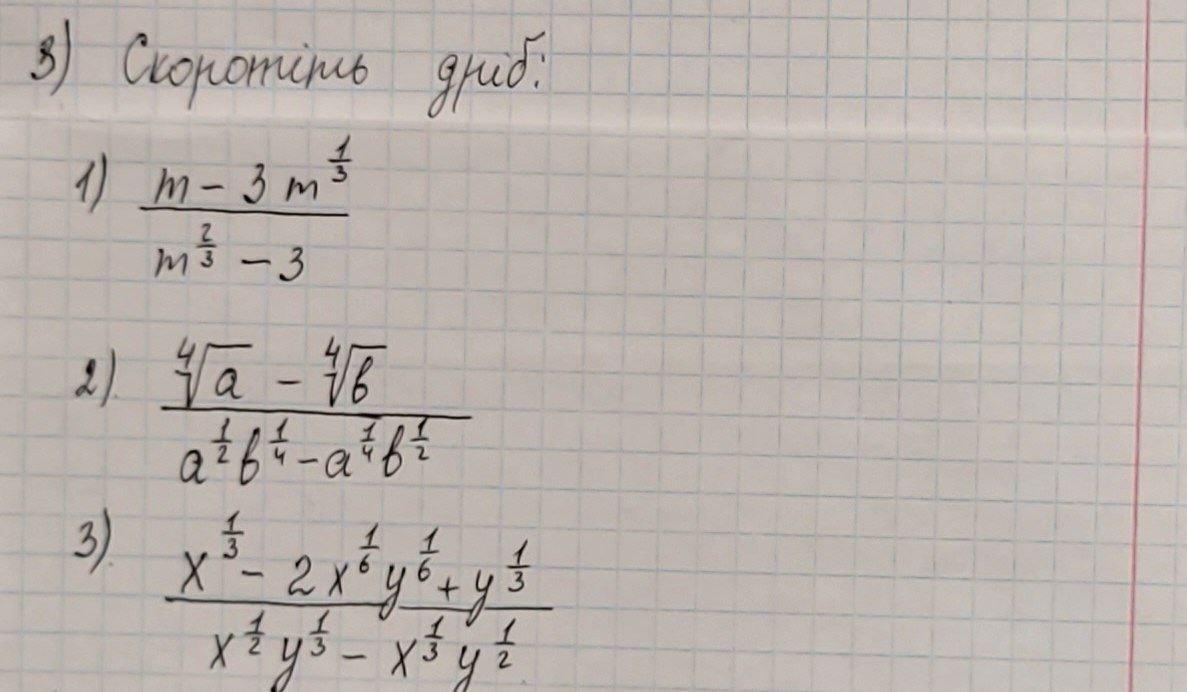 3) Скоротіть дріб:
1) \frac{m - 3m^{\frac{1}{3}}}{m^{\frac{2}{3}} - 3}
2) \frac{\sqrt[4]{a} - \sqrt[4]{b}}{a^{\frac{1}{2}}b^{\frac{1}{4}} - a^{\frac{1}{4}}b^{\frac{1}{2}}}
3) \frac{x^{\frac{1}{3}} - 2x^{\frac{1}{6}}y^{\frac{1}{6}} + y^{\frac{1}{3}}}{x^{\frac{1}{2}}y^{\frac{1}{3}} - x^{\frac{1}{3}}y^{\frac{1}{2}}}